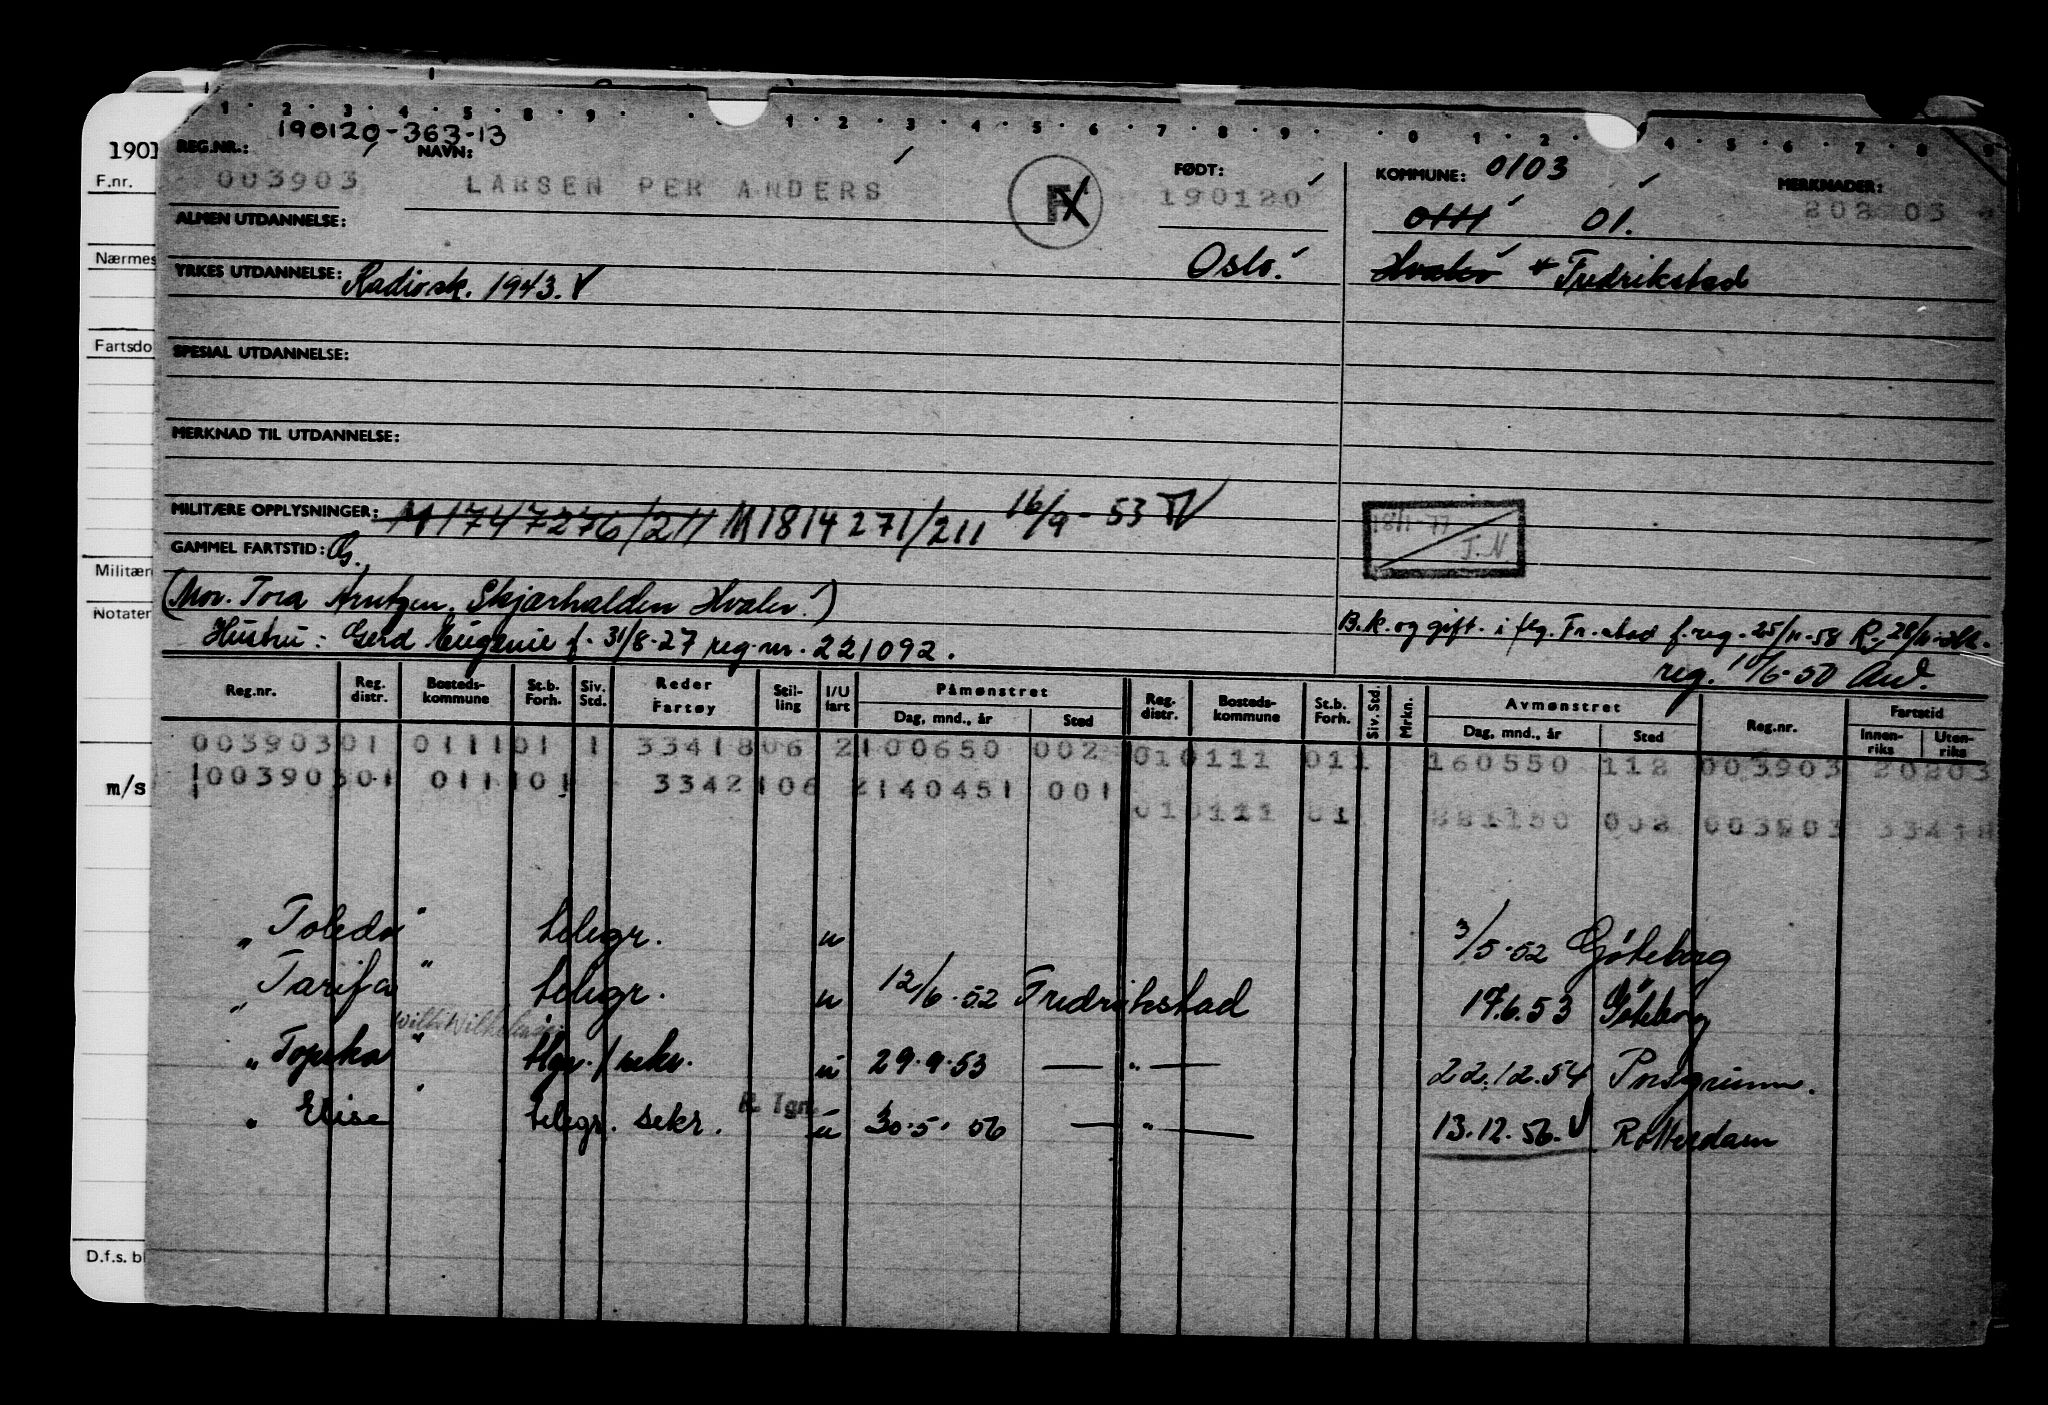 1 · 2 · 3 · 4 · 5 · 8 · 9 · · 1 · 2 · 3 · 4 · 5 · 6 · 7 · 8 · 9 · · 0 · 1 · 2 · 4 · 5 · 6 · 7 · 8 · 9
190120-363-13
REG.NR.: NAVN: FØDT: KOMMUNE: 0103 MERKNADER:
003903 LARSEN PER ANDERS F 190120 0111 01. 202203
ALMEN UTDANNELSE:
Oslo. Hvaler Fredrikstad
YRKES UTDANNELSE: Radiosk. 1943. V
SPESIAL UTDANNELSE:
MERKNAD TIL UTDANNELSE:
MILITÆRE OPPLYSNINGER: M1747276/211 M1814271/211 16/9-53
18/1-77
J.N
GAMMEL FARTSTID:
(Mor. Tora Arntzen. Skjærhalden Hvaler.)
Hustru: Gerd Eugenie f. 31/8-27 reg.nr. 221092.
B.k. og gift. i flg. Fr.stad f.reg. 25/11-58
reg. 10/6-50
Reg.nr. Reg. distr. Bosteds-kommune St.b. Forh. Siv. Std. Reder Fartøy Stil-ling I/U fart Påmønstret Dag, mnd., år Sted Reg. distr. Bosteds-kommune St.b. Forh. Siv. Std. Mrkn. Avmønstret Dag, mnd., år Sted Reg.nr. Fartstid Innen-riks Uten-riks
00390301 011101 1 3341806 2100650 002 010111 011 160550 112 003903 20203
00390301 011101 3342106 2140451 001
010111 01 281150 002 003903 33418
" Toledo " telegr. u 3/5-52 Göteborg
" Tarifa " telegr. u 12/6-52 Fredrikstad 17.6.53 Göteborg
Wilh Wilhelmsen
" Topeka " tlgr./sekr. u 29.9.53 — " — 22.12.54 Porsgrunn.
" Elise " telegr. sekr. R. Ign. u 30.5.56 — " — 13.12.56. V Rotterdam
1901
F.nr.
Nærmes
Fartsdo
Militær
Notater
m/s
D.f.s. bl